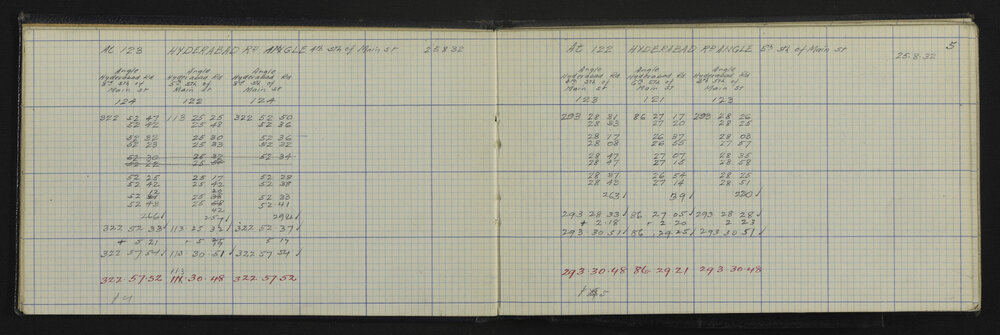 At 123 HYDERABAD RD ANGLE 4th Sth of Main St 25.8.32
Angle Angle Angle
Hyderabad Rd Hyderabad Rd Hyderabad Rd
3rd Sth of 5th Sth of 3rd Sth of
Main St Main St Main St
124 122 124
322 52 47 113 25 25 322 52 50
52 42 25 43 52 36
52 32 25 30 52 36
52 23 25 33 52 32
52 30 25 32 52 34
52 22 25
52 25 25 17 52 28
52 42 25 42 52 38
52 25 52 33
52 43 25 52 41
266 257 298
322 52 33 113 25 32 322 52 37
+ 5 21 5 5 17
322 57 54 113 30 51 322 57 54
322 57 52 113 30 48 322 57 52
5
At 122 HYDERABAD RD ANGLE 5th Sth of Main St
25.8.32
Angle Angle Angle
Hyderabad Rd Hyderabad Rd Hyderabad Rd
4th Sth of 6th Sth of 4th Sth of
Main St Main St Main St
123 121 123
293 28 31 86 27 17 293 28 26
28 33 27 20 28 25
28 17 26 37 28 03
28 08 26 55 27 57
28 47 27 07 28 35
28 47 27 15 28 58
28 37 26 54 28 25
28 42 27 14 28 51
263 39 220
293 28 33 86 27 05 293 28 28
+ 2 18 2 20 2 23
293 30 51 86 29 25 293 30 51
293 30 48 86 29 21 293 30 48